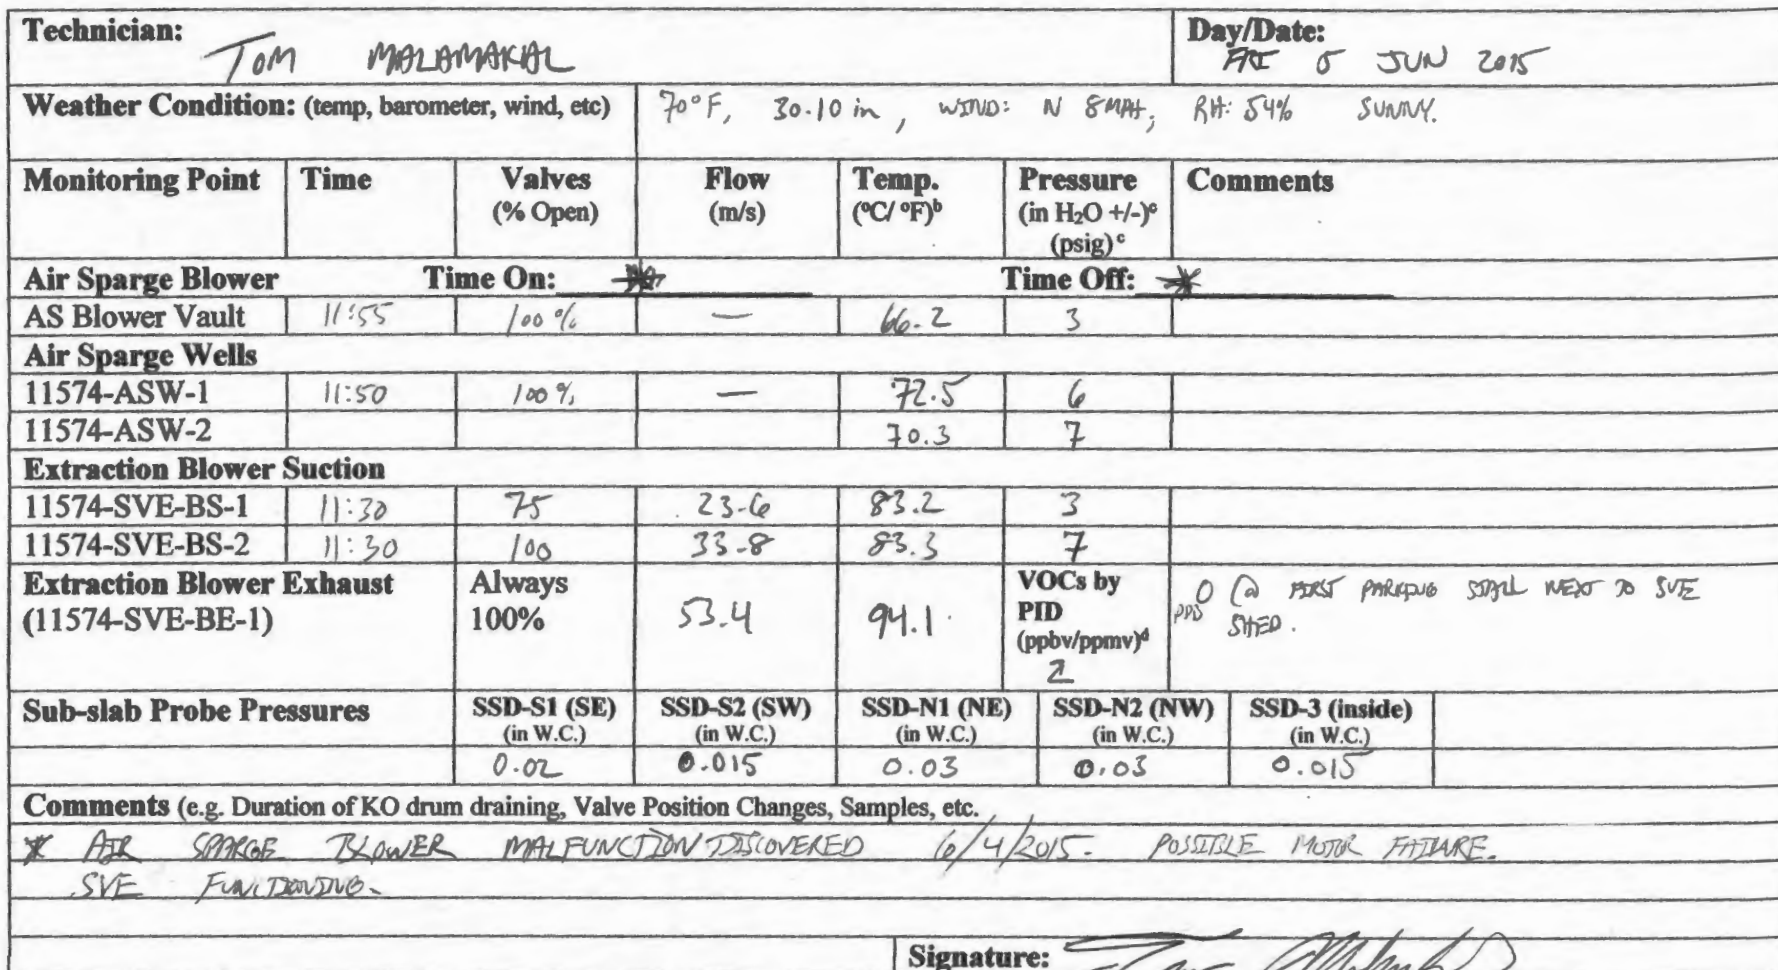 Technician: Day/Date:
TOM MALAMAKAL FRI 5 JUN 2015
Weather Condition: (temp, barometer, wind, etc) 70°F, 30.10 in, WIND: N 8MPH, RH: 54% SUNNY.
Monitoring Point Time Valves Flow Temp. Pressure Comments
(% Open) (m/s) (°C/ °F)b (in H2O +/-)c
(psig) c
Air Sparge Blower Time On: * Time Off: *
AS Blower Vault 11:55 100% — 66.2 3
Air Sparge Wells
11574-ASW-1 11:50 100% — 72.5 6
11574-ASW-2 70.3 7
Extraction Blower Suction
11574-SVE-BS-1 11:30 75 23.6 83.2 3
11574-SVE-BS-2 11:30 100 33.8 83.3 7
Extraction Blower Exhaust Always 53.4 94.1 VOCs by 0 @ FIRST PARKING STALL NEXT TO SVE
(11574-SVE-BE-1) 100% PID SHED.
(ppbv/ppmv)d
Sub-slab Probe Pressures SSD-S1 (SE) SSD-S2 (SW) SSD-N1 (NE) SSD-N2 (NW) SSD-3 (inside)
(in W.C.) (in W.C.) (in W.C.) (in W.C.) (in W.C.)
0.02 0.015 0.03 0.03 0.015
Comments (e.g. Duration of KO drum draining, Valve Position Changes, Samples, etc.
* AIR SPARGE BLOWER MALFUNCTION DISCOVERED 6/4/2015. POSSIBLE MOTOR FAILURE.
SVE FUNCTIONING.
Signature: